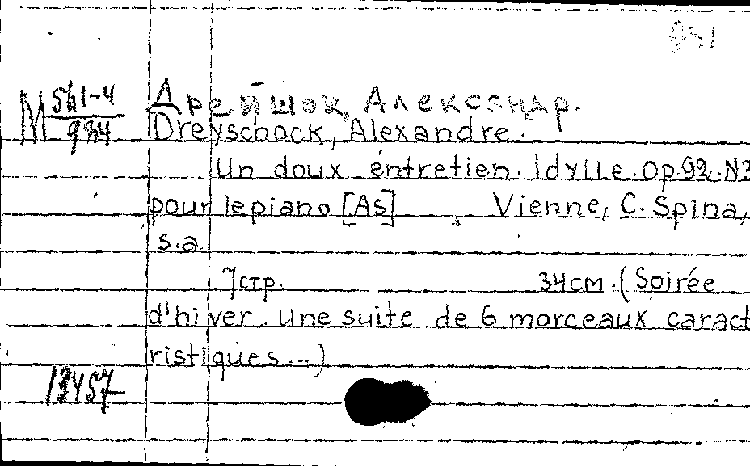 Дрейшок, Александр.
M 561-4
Dreyschock, Alexandre.
Un doux entretien. Idylle. Op. 92. N
pour le piano [As] Vienne, C. Spina,
s.a.
7 стр. 34 см. (Soirée
d'hiver. Une suite de 6 morceaux caract
ristiques...)
13457